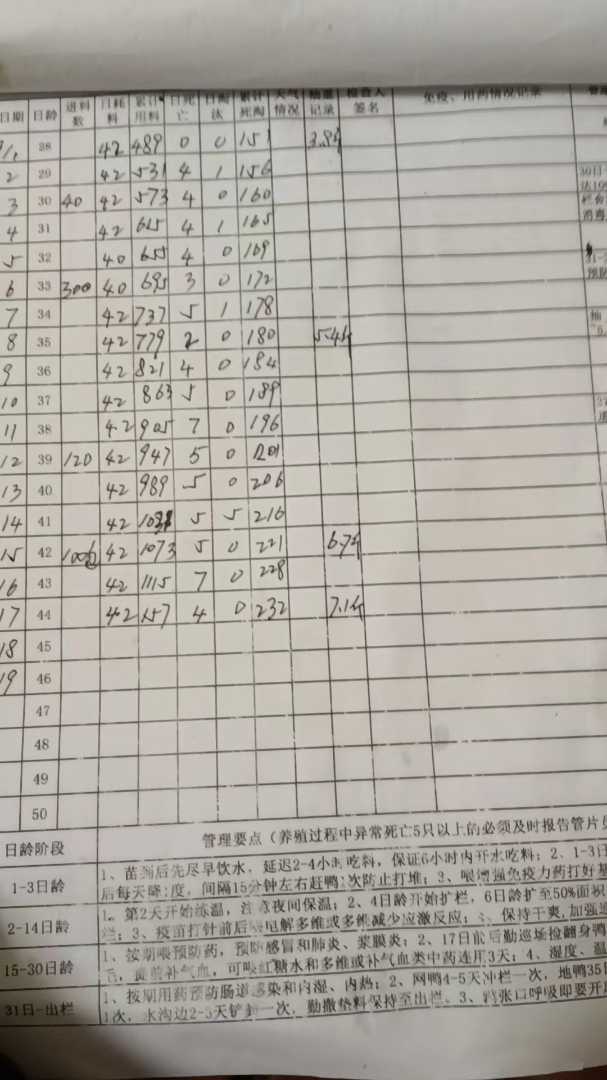 日期 日龄 进料数 日耗料 累计用料 日死亡 日淘汰 累计死淘 天气情况 抽重记录 检查人签名 免疫、用药情况记录
28 42 489 0 0 151
2 29 42 531 4 1 156
3 30 40 42 573 4 0 160
4 31 42 615 4 1 165
5 32 40 655 4 0 169
6 33 300 40 695 3 0 172
7 34 42 737 5 1 178
8 35 42 779 2 0 180 5.4斤
9 36 42 821 4 0 184
10 37 42 863 5 0 189
11 38 42 905 7 0 196
12 39 120 42 947 5 0 201
13 40 42 989 5 0 206
14 41 42 1031 5 5 216
15 42 42 1073 5 0 221 6.7斤
16 43 42 1115 7 0 228
17 44 42 1157 4 0 232 7.1斤
18 45
19 46
47
48
49
50
日龄阶段 管理要点（养殖过程中异常死亡5只以上的必须及时报告管片
1-3日龄 1、苗到后先尽早饮水，延迟2-4小时吃料，保证6小时内开水吃料；2、1-3日
后每天降1度，间隔15分钟左右赶鸭1次防止打堆；3、喂增强免疫力药打好基
2-14日龄 1、第2天开始冻温，注意夜间保温；2、4日龄开始扩栏，6日龄扩至50%面积
栏；3、疫苗打针前后喂电解多维或多维减少应激反应；4、保持干爽,加强
15-30日龄 1、按期喂预防药，预防感冒和肺炎、浆膜炎；2、17日前后勤巡场捡翻身鸭
后，黄芪补气血，可喂红糖水和多维或补气血类中药连用3天；4、湿度、温
31日-出栏 1、按期用药预防肠道感染和内湿、内热；2、网鸭4-5天冲栏一次，地鸭35日
1次，水沟边2-3天铲 一次，勤撒垫料保持至出栏。3、 张口呼吸即要开